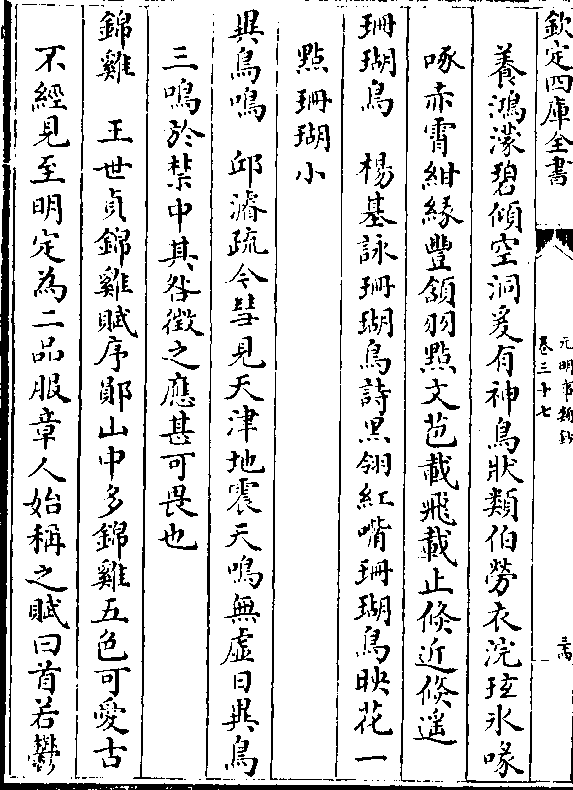 欽定四庫全書
元明事類鈔
卷三十七
養鴻濛碧傾空洞爰有神鳥狀類伯勞衣浣玹氷喙
啄赤霄紺緣豐頷羽點文苞載飛載止倐近倐遥
珊瑚鳥　楊基詠珊瑚鳥詩黒翎紅嘴珊瑚鳥映花一
點珊瑚小
異鳥鳴　邱濬疏今彗見天津地震天鳴無虚日異鳥
三鳴於禁中其咎徴之應甚可畏也
錦雞　王世貞錦雞賦序鄖山中多錦雞五色可愛古
不經見至明定為二品服章人始稱之賦曰首若鬱